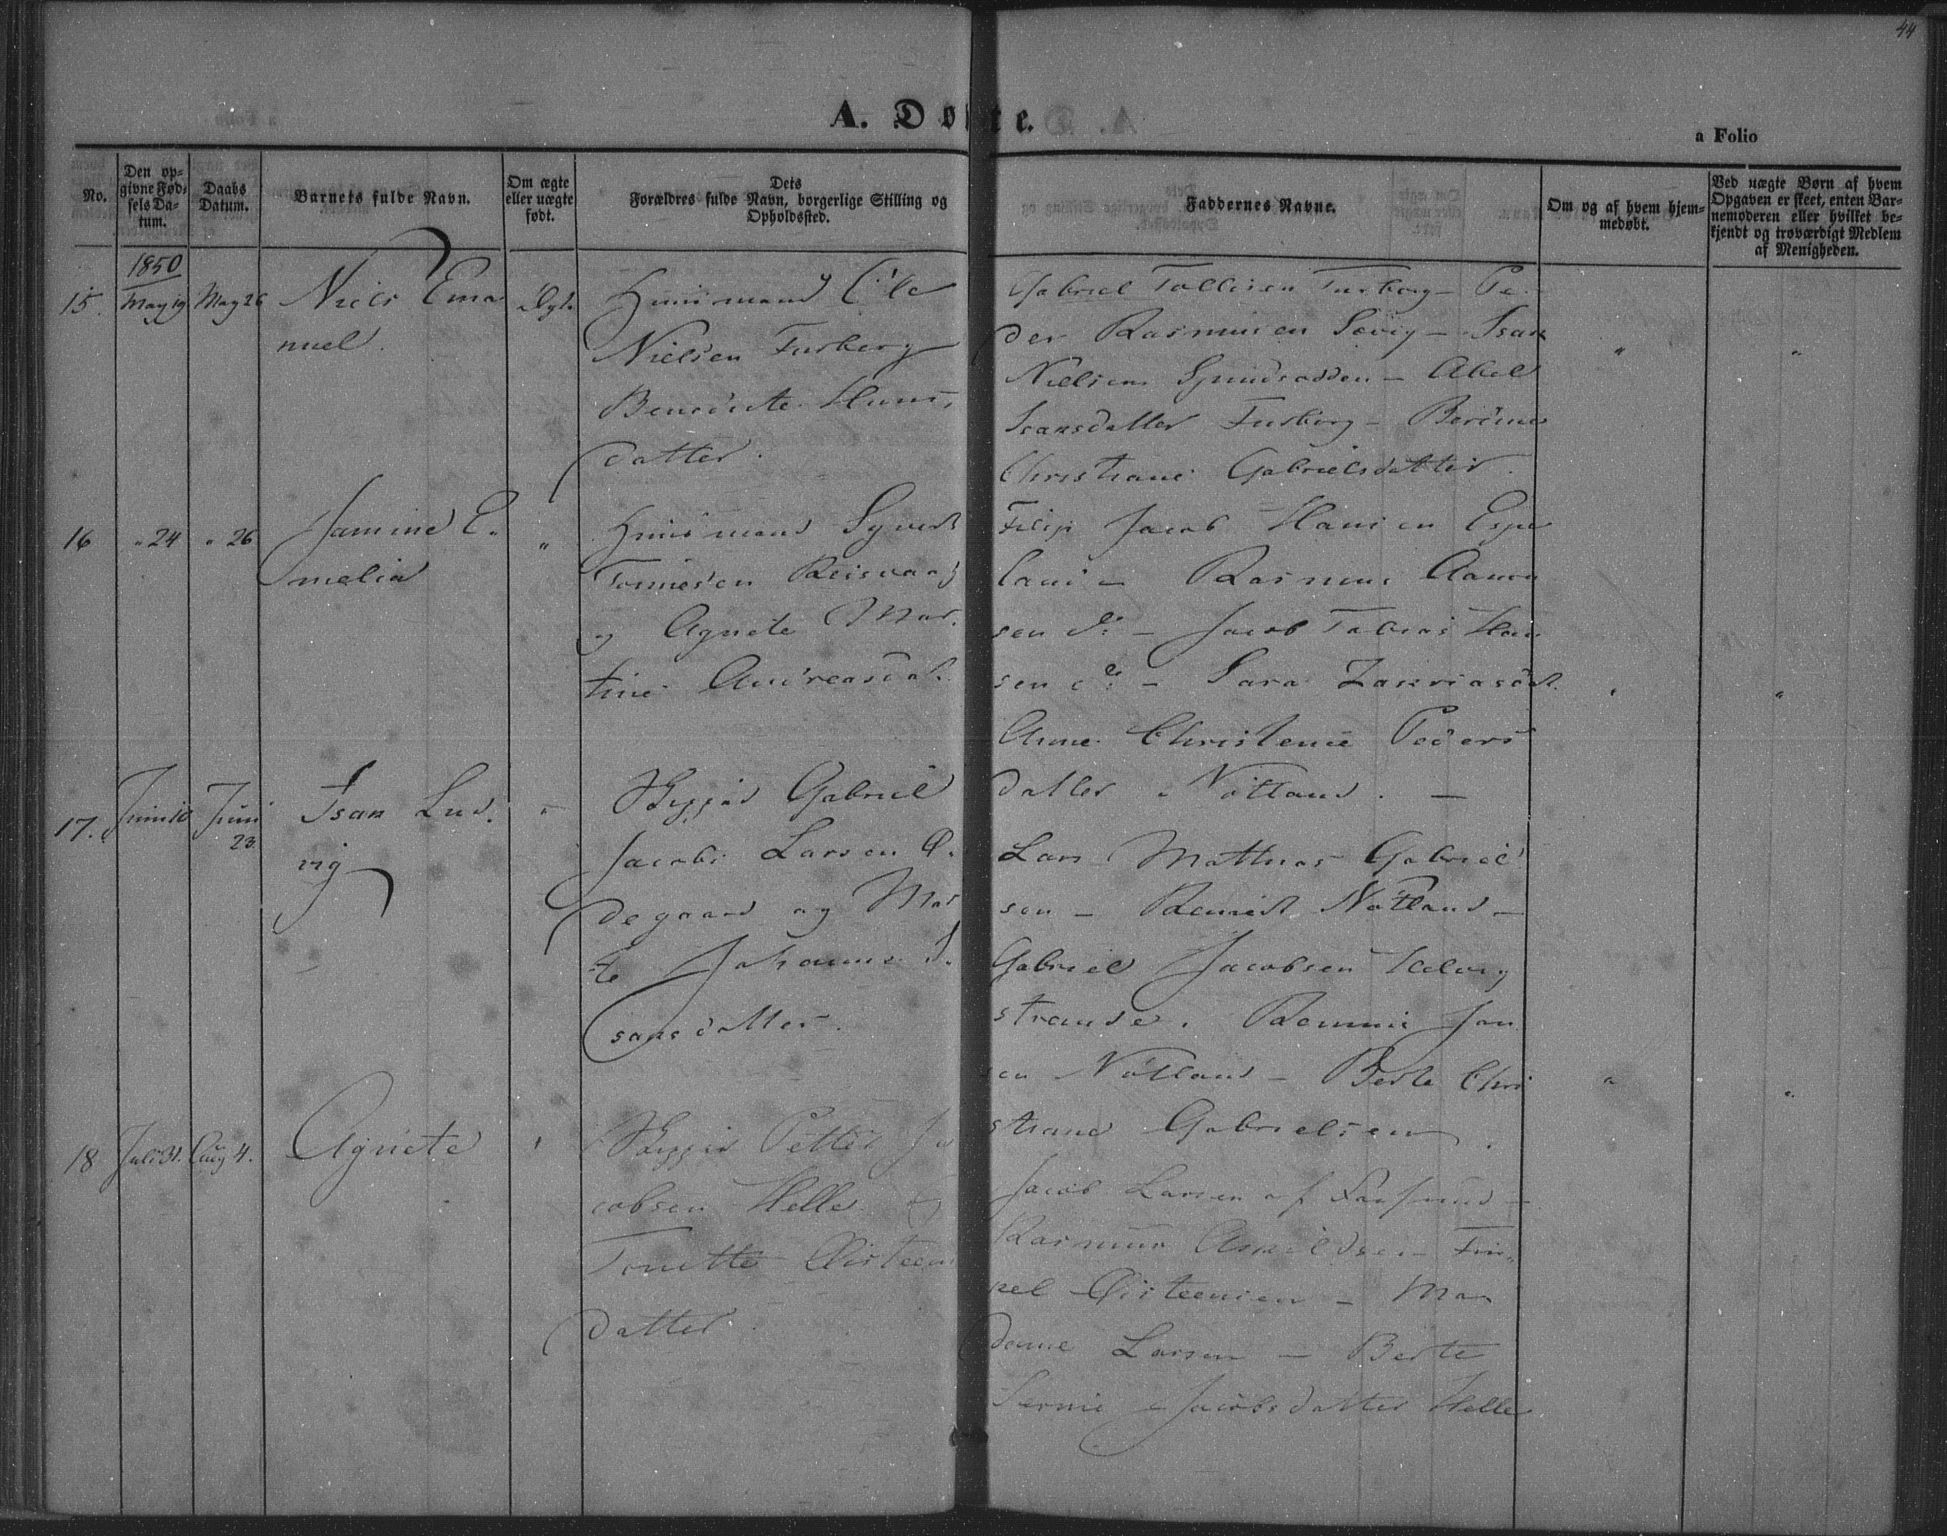 44
A. Døbte.
a Folio
No.
Den op-
givne Fød-
sels Da-
tum.
Daabs
Datum.
Barnets fulde Navn.
Om ægte
eller uægte
født.
Dets
Forældres fulde Navn, borgerlige Stilling og
Opholdssted.
Faddernes Navne.
Om og af hvem hjem-
medøbt.
Ved uægte Børn af hvem
Opgaven er skeet, enten Bar-
nemoderen eller hvilket be-
kjendt og troværdigt Medlem
af Menigheden.
1850
15. May 19 May 26 Niels Ema
nuel.
Huusmand Ole
Nielsen Furberg
Benedicte Hans
datter.
Gabriel Tollisen Furberg - Pe-
der Rasmusen - Isak
Nielsen - Abel
Isansdatter Furberg -
Christiane Gabrielsdatter.
16 " 24 " 26 Jamine E-
melia
"
Huusmand Syvert
Tonnesen
og Agnete Mar-
tine Andreasdat.
Filip Jacob Hansen Espe
land - Rasmus Aanen
sen do - Jacob Tobias Han
sen do - Sara Zakriasdat.
Anne Christense Peders
datter Nøtland. -
17. Juni 10 Juni
23.
Isak Lud-
vig
"
Skipper Gabriel
Jacobs Larsen Ø-
degaard og Mar
te Johanne I-
saksdatter.
Lars Mathias Gabriel
sen - Nøtland -
Gabriel Jacobsen
strande. Jan
sen Nøtland - Berte Chri
stiane Gabrielsen.
18 Juli 31. Aug 4. Agnete
"
Skipper Petter Ja
cobsen Helle og
Tonette Øisteens
datter.
Jacob Larsen af Farsund -
Rasmus
kel Øisteensen - Ma
dame Larsen - Berte
Serine Jacobsdatter Helle